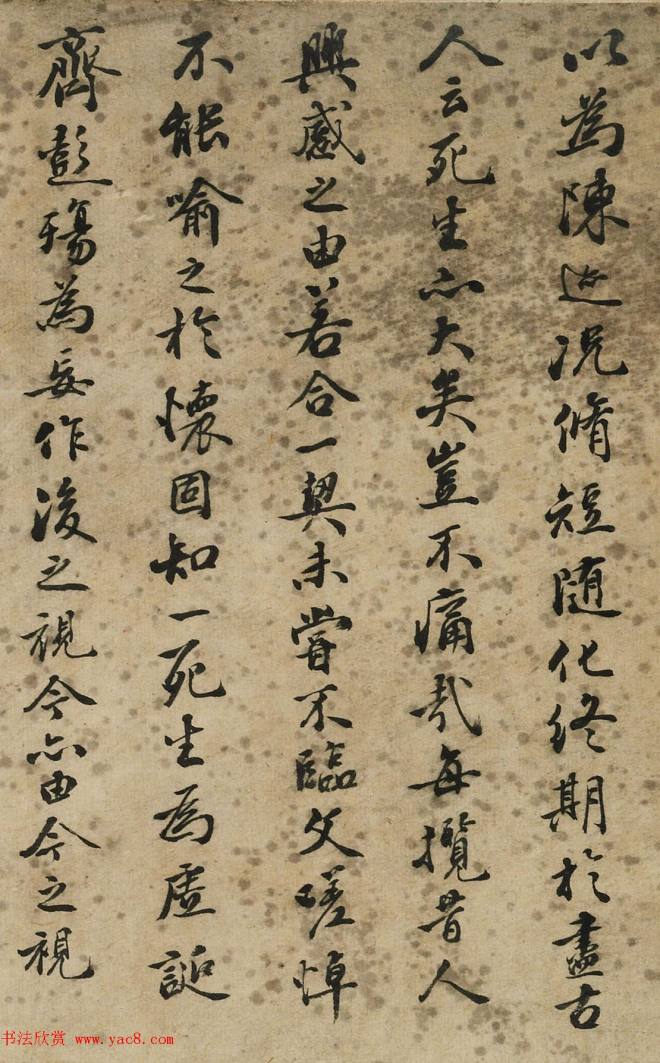 以為陳迹況脩短随化終期於盡古
人云死生亦大矣豈不痛哉每攬昔人
興感之由若合一契未嘗不臨文嗟悼
不能喻之於懷固知一死生為虛誕
齊彭殤為妄作後之視今亦由今之視
书法欣赏 www.yac8.com